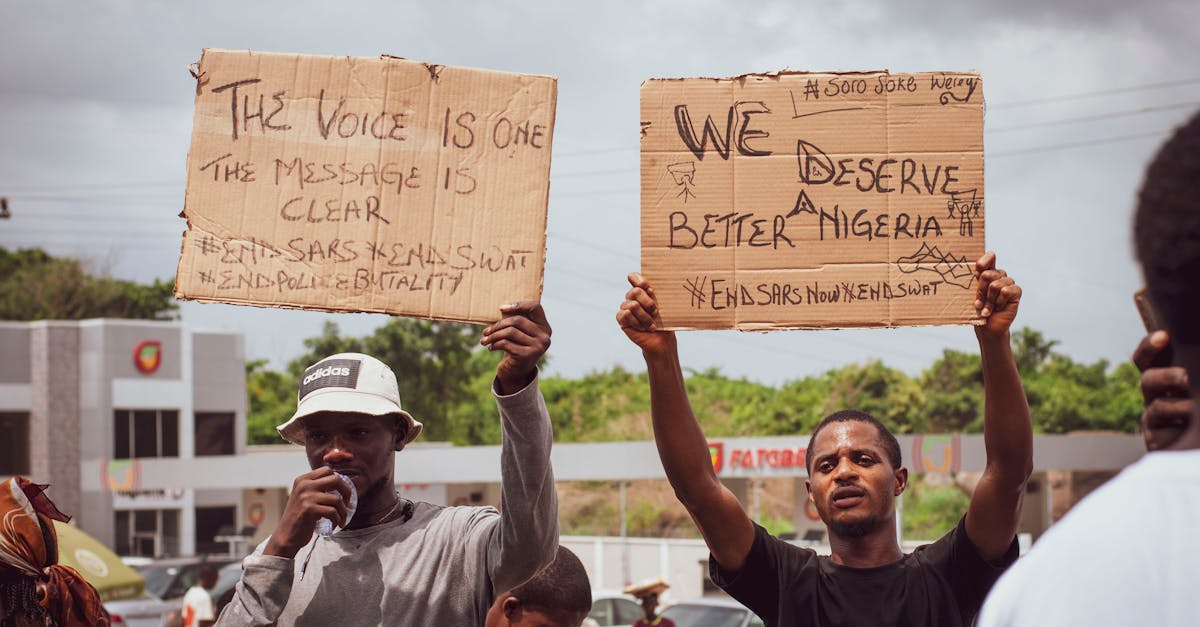 THE VOICE IS ONE
THE MESSAGE IS
CLEAR
#ENDSARS #ENDSWAT
#ENDPOLICEBUTALITY
#Soro Soke Werey
WE
DESERVE
BETTER NIGERIA
#ENDSARSNOW #ENDSWAT
adidas
FATGBE